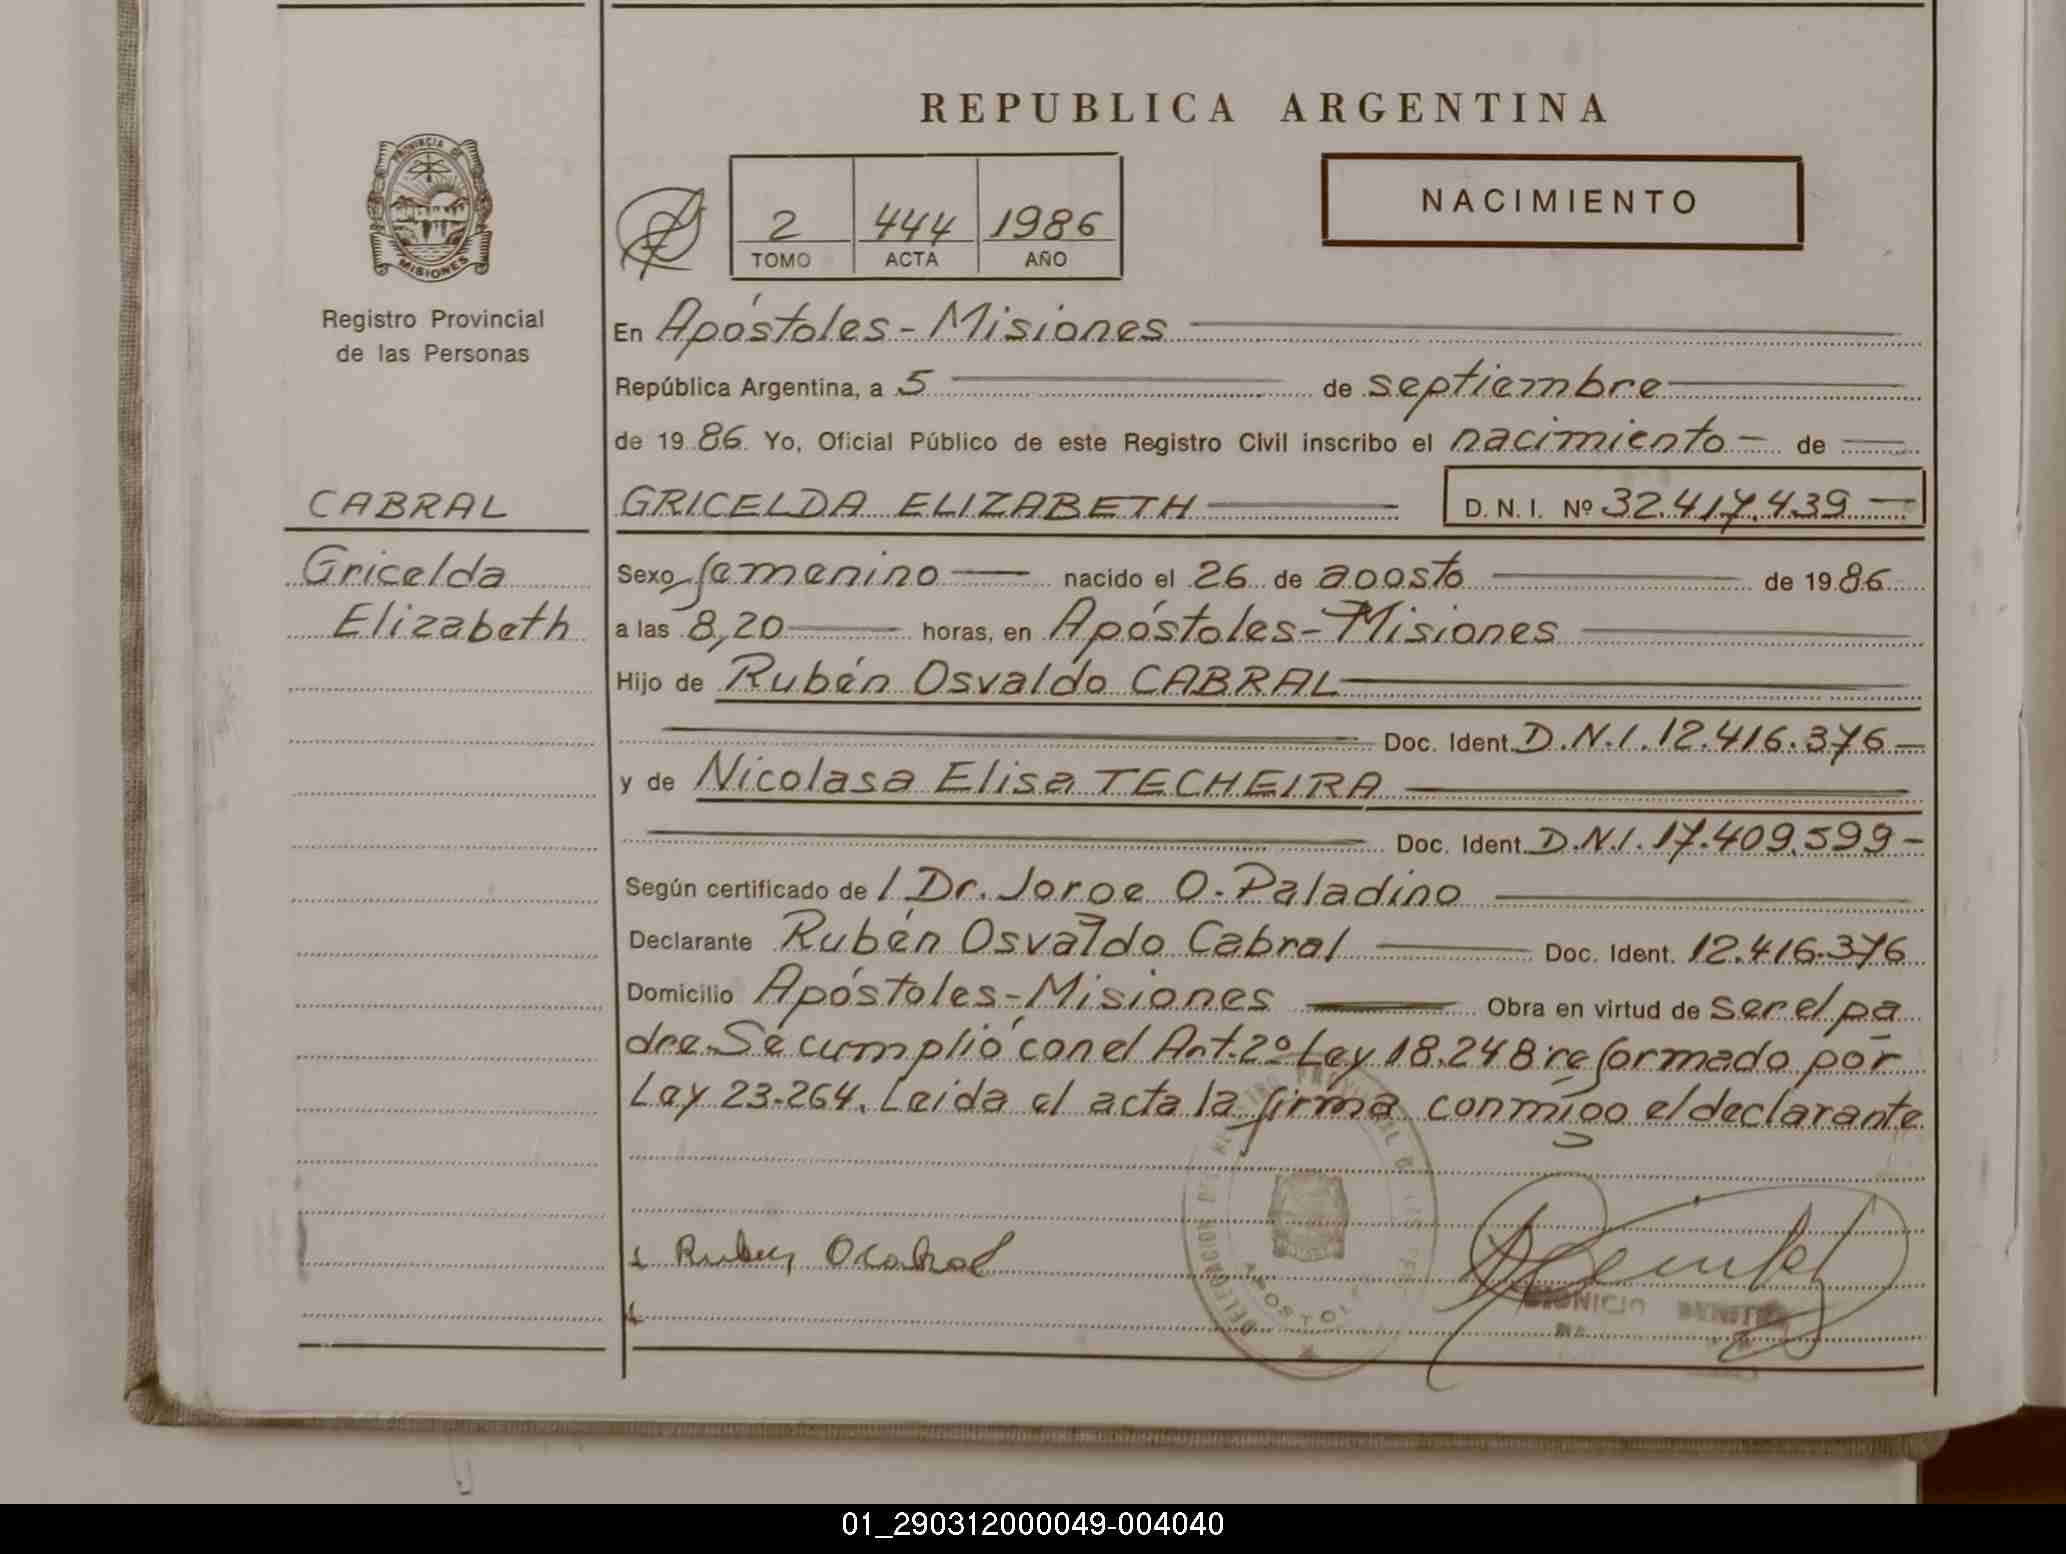 REPUBLICA ARGENTINA
PROVINCIA DE
MISIONES
Registro Provincial
de las Personas
2 444 1986
TOMO ACTA AÑO
NACIMIENTO
En Apóstoles-Misiones
República Argentina, a 5 de septiembre
de 19 86 Yo, Oficial Público de este Registro Civil inscribo el nacimiento de
CABRAL
GRICELDA ELIZABETH D. N. I. Nº 32.417.439
Gricelda
Elizabeth
Sexo femenino nacido el 26 de agosto de 19 86
a las 8,20 horas, en Apóstoles-Misiones
Hijo de Rubén Osvaldo CABRAL
Doc. Ident. D.N.I. 12.416.376
y de Nicolasa Elisa TECHEIRA
Doc. Ident. D.N.I. 17.409.599
Según certificado de / Dr. Jorge O. Paladino
Declarante Rubén Osvaldo Cabral Doc. Ident. 12.416.376
Domicilio Apóstoles-Misiones Obra en virtud de ser el pa
dre. Se cumplió con el Art. 2º Ley 18.248 reformado por
Ley 23.264. Leida el acta la firma conmigo el declarante
Ruben O Cabral
DIONICIO
01_290312000049-004040